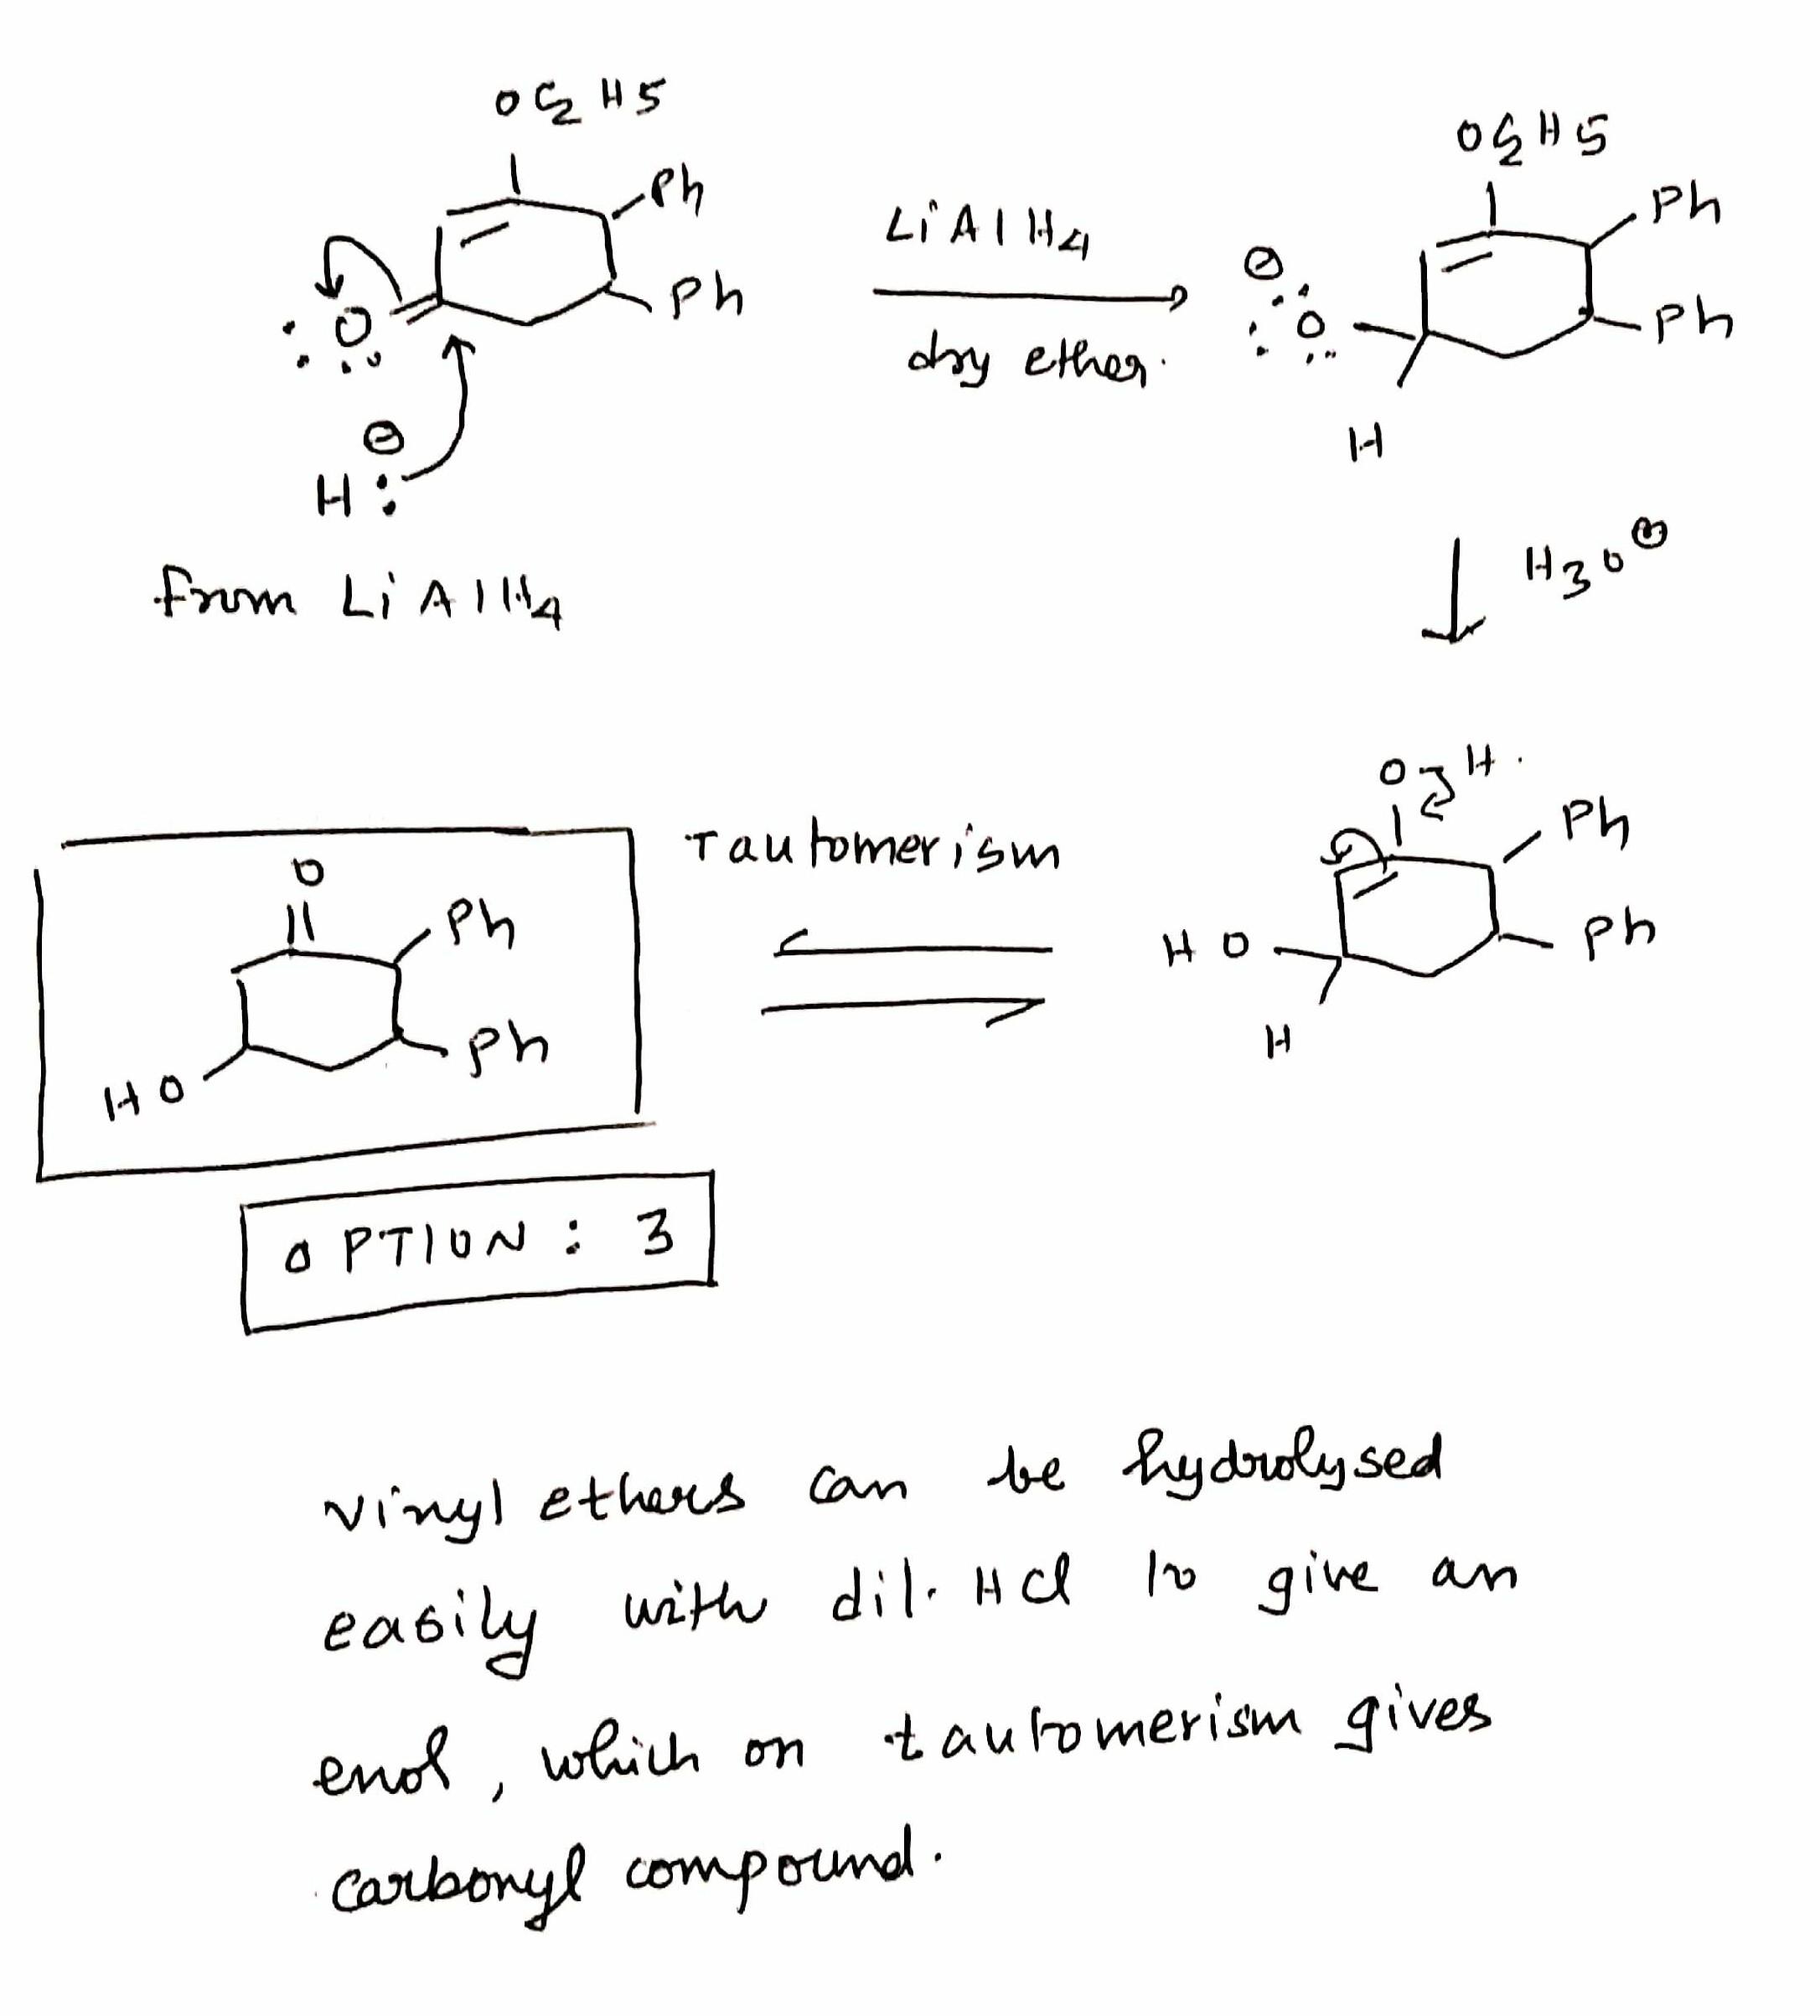 OC2H5
Ph
Ph
O
H:
from LiAlH4
LiAlH4
dry ether.
OC2H5
Ph
Ph
O
H
H3O⊕
OH
Ph
Ph
HO
H
Tautomerism
O
Ph
Ph
HO
OPTION : 3
vinyl ethers can be hydrolysed
easily with dil. HCl to give an
enol, which on tautomerism gives
carbonyl compound.